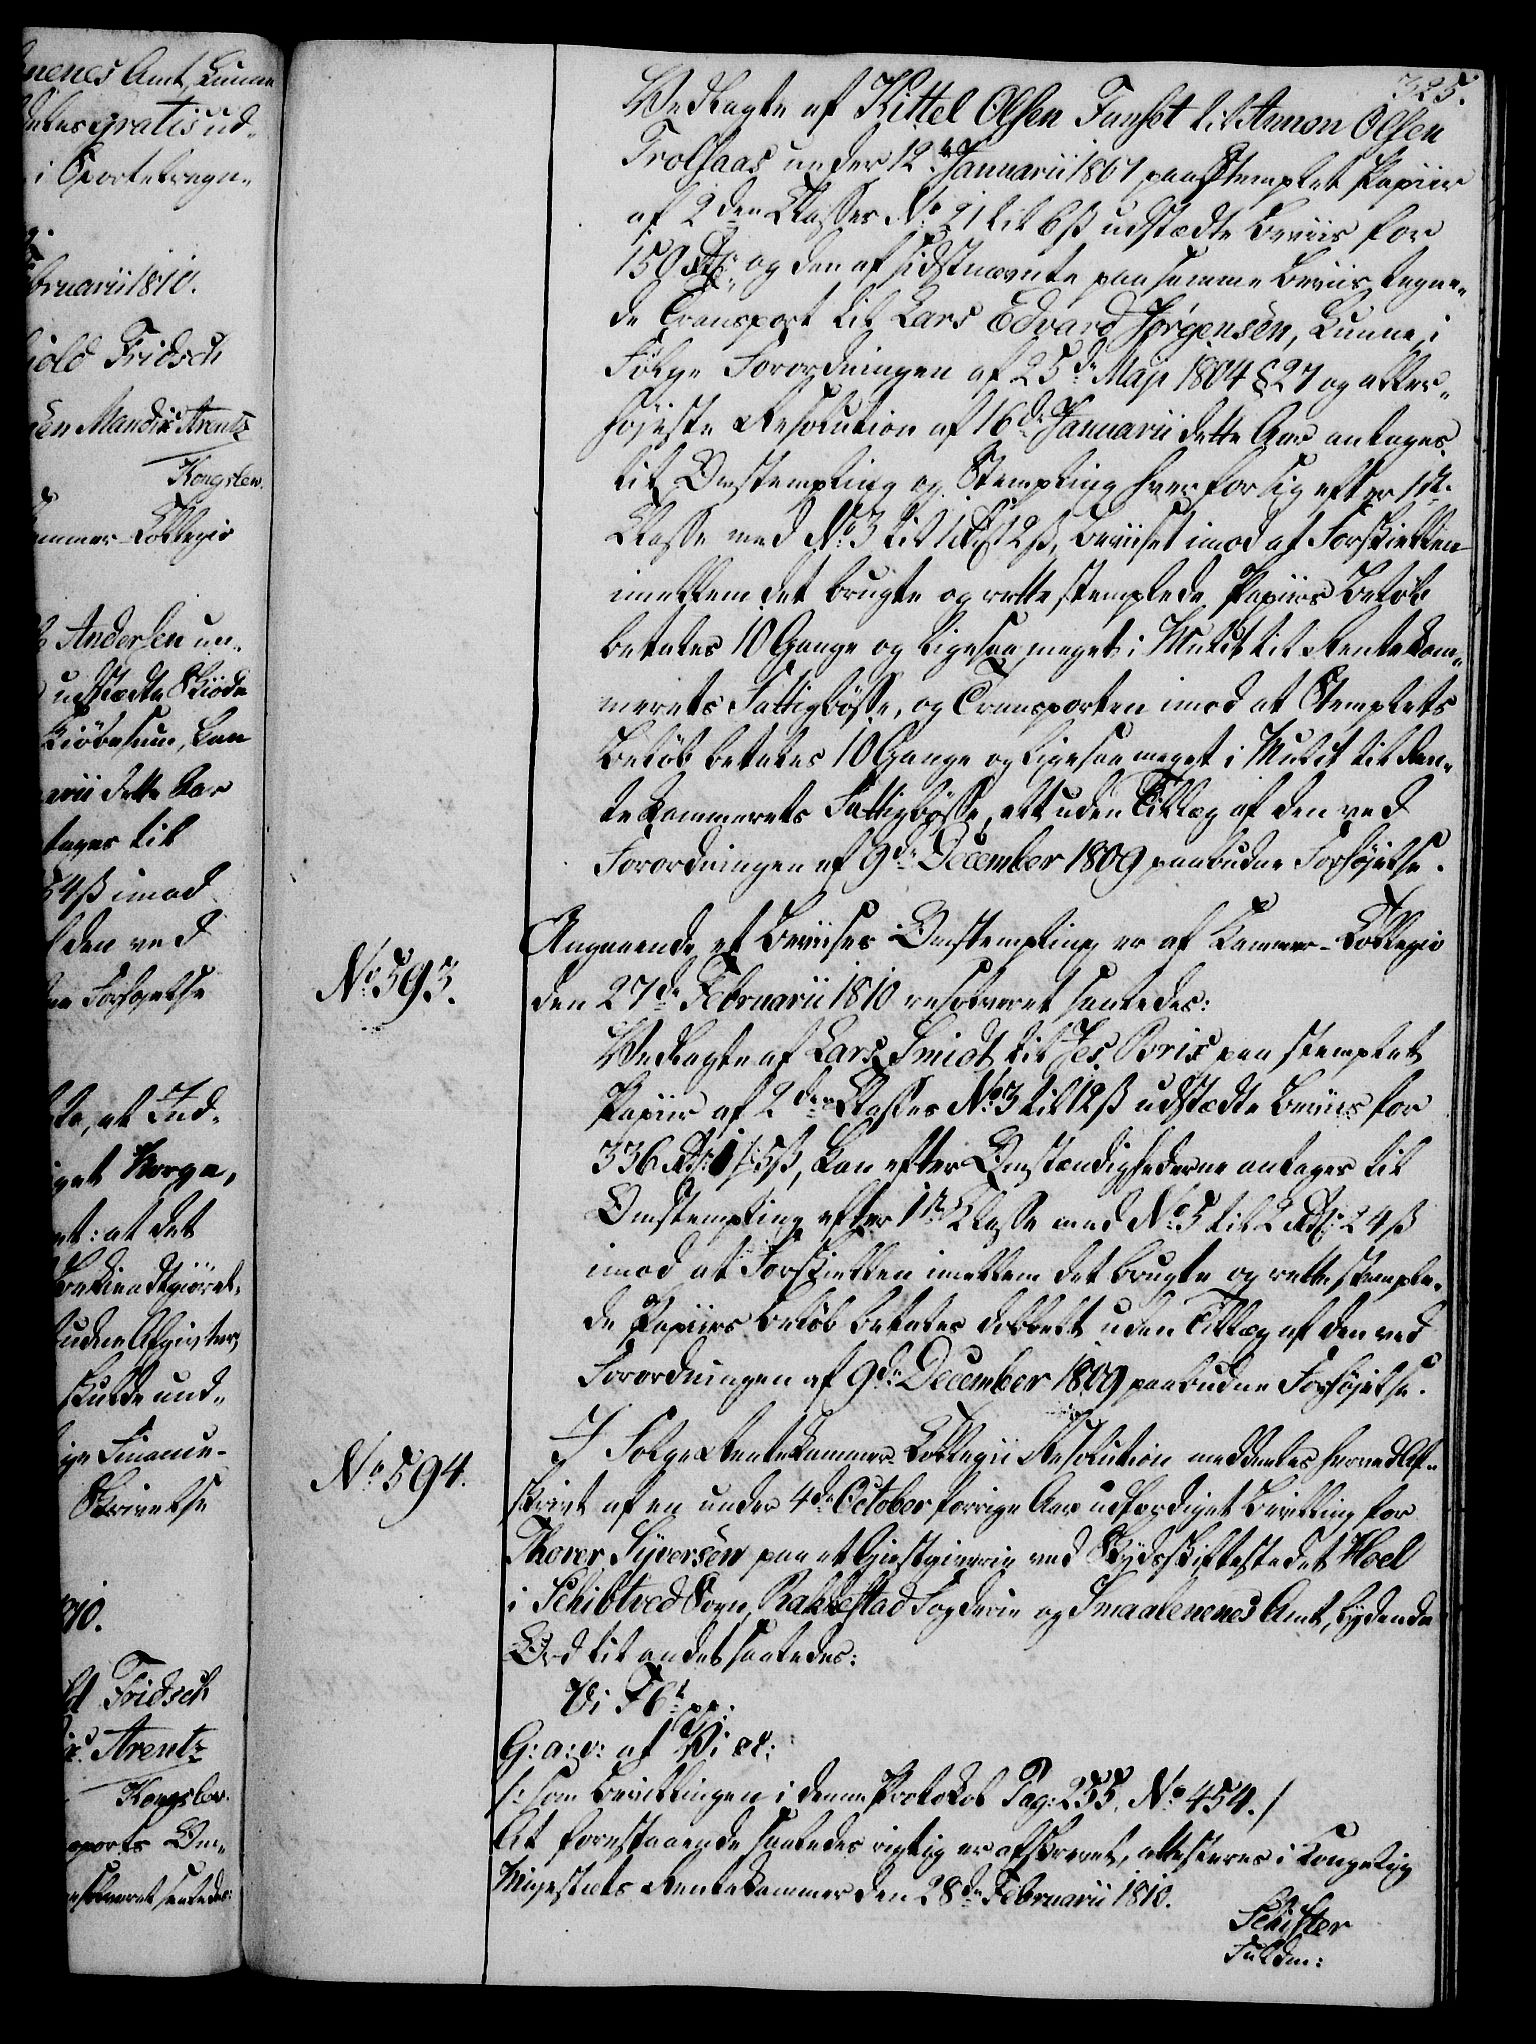 325.
Vedlagte af Kittel Olsen Funhøt til Amon Olsen
Trolsaas under 12te Januarii 1807 paa Stemplet Papiir
af 2den Classes No 21 til 6 ß udstædte Beviis for
150 Rdr og den af sidstnævnte paa samme Beviis tegne-
de Transport til Lars Edvard Jørgensen, kunne i
Følge Forordningen af 25de Maji 1804 § 27 og aller-
højeste Resolution af 16de Januarii dette Aar antages
til Omstempling og Stempling hver for sig efter 1ste
Classe med No 3 til 1 Rdr 12 ß, Beviset imod at Forskiellen
imellem det brugte og rette stemplede Papiirs Beløb
betales 10 Gange og ligesaa meget i Mulct til Rentekam-
merets Fattigbøsse, og Transporten imod at Stemplets
Beløb betales 10 Gange og ligesaa meget i Mulct til Ren-
tekammerets Fattigbøsse, alt uden Tillæg af den ved
Forordningen af 9de December 1809 paabudne Forhøjelse.
No 593.
Angaaende et Beviises Omstempling er af Kammer-Collegio
den 27de Februarii 1810 resolveret saaledes:
Vedlagte af Lars Smidt til Jes Brix paa stemplet
Papiir af 2den Classes No 3 til 12 ß udstædte Beviis for
336 Rdr 1 ℔ 5 ß, kan efter Omstændighederne antages til
Omstempling efter 1ste Classe med No 5 til 2 Rdr 24 ß
imod at Forskiellen imellem det brugte og rette stemple-
de Papiirs Beløb betales dobbelt uden Tillæg af den ved
Forordningen af 9de December 1809 paabudne Forhøjelse.
No 594.
I Følge Rentekammer Collegii Resolution meddeeles herved Af-
skrivt af en under 4de October forrige Aar udfærdiget Bevilling for
Thorer Syversen paa et Giestgiverie ved Skydsskiftestedet Hoel
i Schibtved Sogn, Rakkestad Fogderie og Smaalenenes Amt, lydende
Ord til andet saaledes:
Vi F 6t pp:
G: a: v: at Vi &c:
/: som Bevillingen i denne Protokol Pag: 255. No 454. /
At foranstaaende saaledes rigtig er afskrevet, attesteres i Kongelig
Majestæts Rentekammer den 28de Februarii 1810.
Schifter
Fuldm:
nenes Amt, kunne
deles gratis ud-
i Sportelregn-
bruarii 1810.
old Fridsch
Mandix Arentz
Kongslev.
ammer-Collegio
Andersen un-
udstædte Skiøde
Kiøbesum, kan
arii dette Aar
tages til
54 ß imod
den ved
Forhøjelse
te, at Ind-
get Norge,
et: at det
bekiendtgiørel-
udne Afgivter
skulde und-
ge Finance-
Skrivelse
10.
Fridsch
Arentz
Kongslev.
sports Om-
esolveret saaledes: